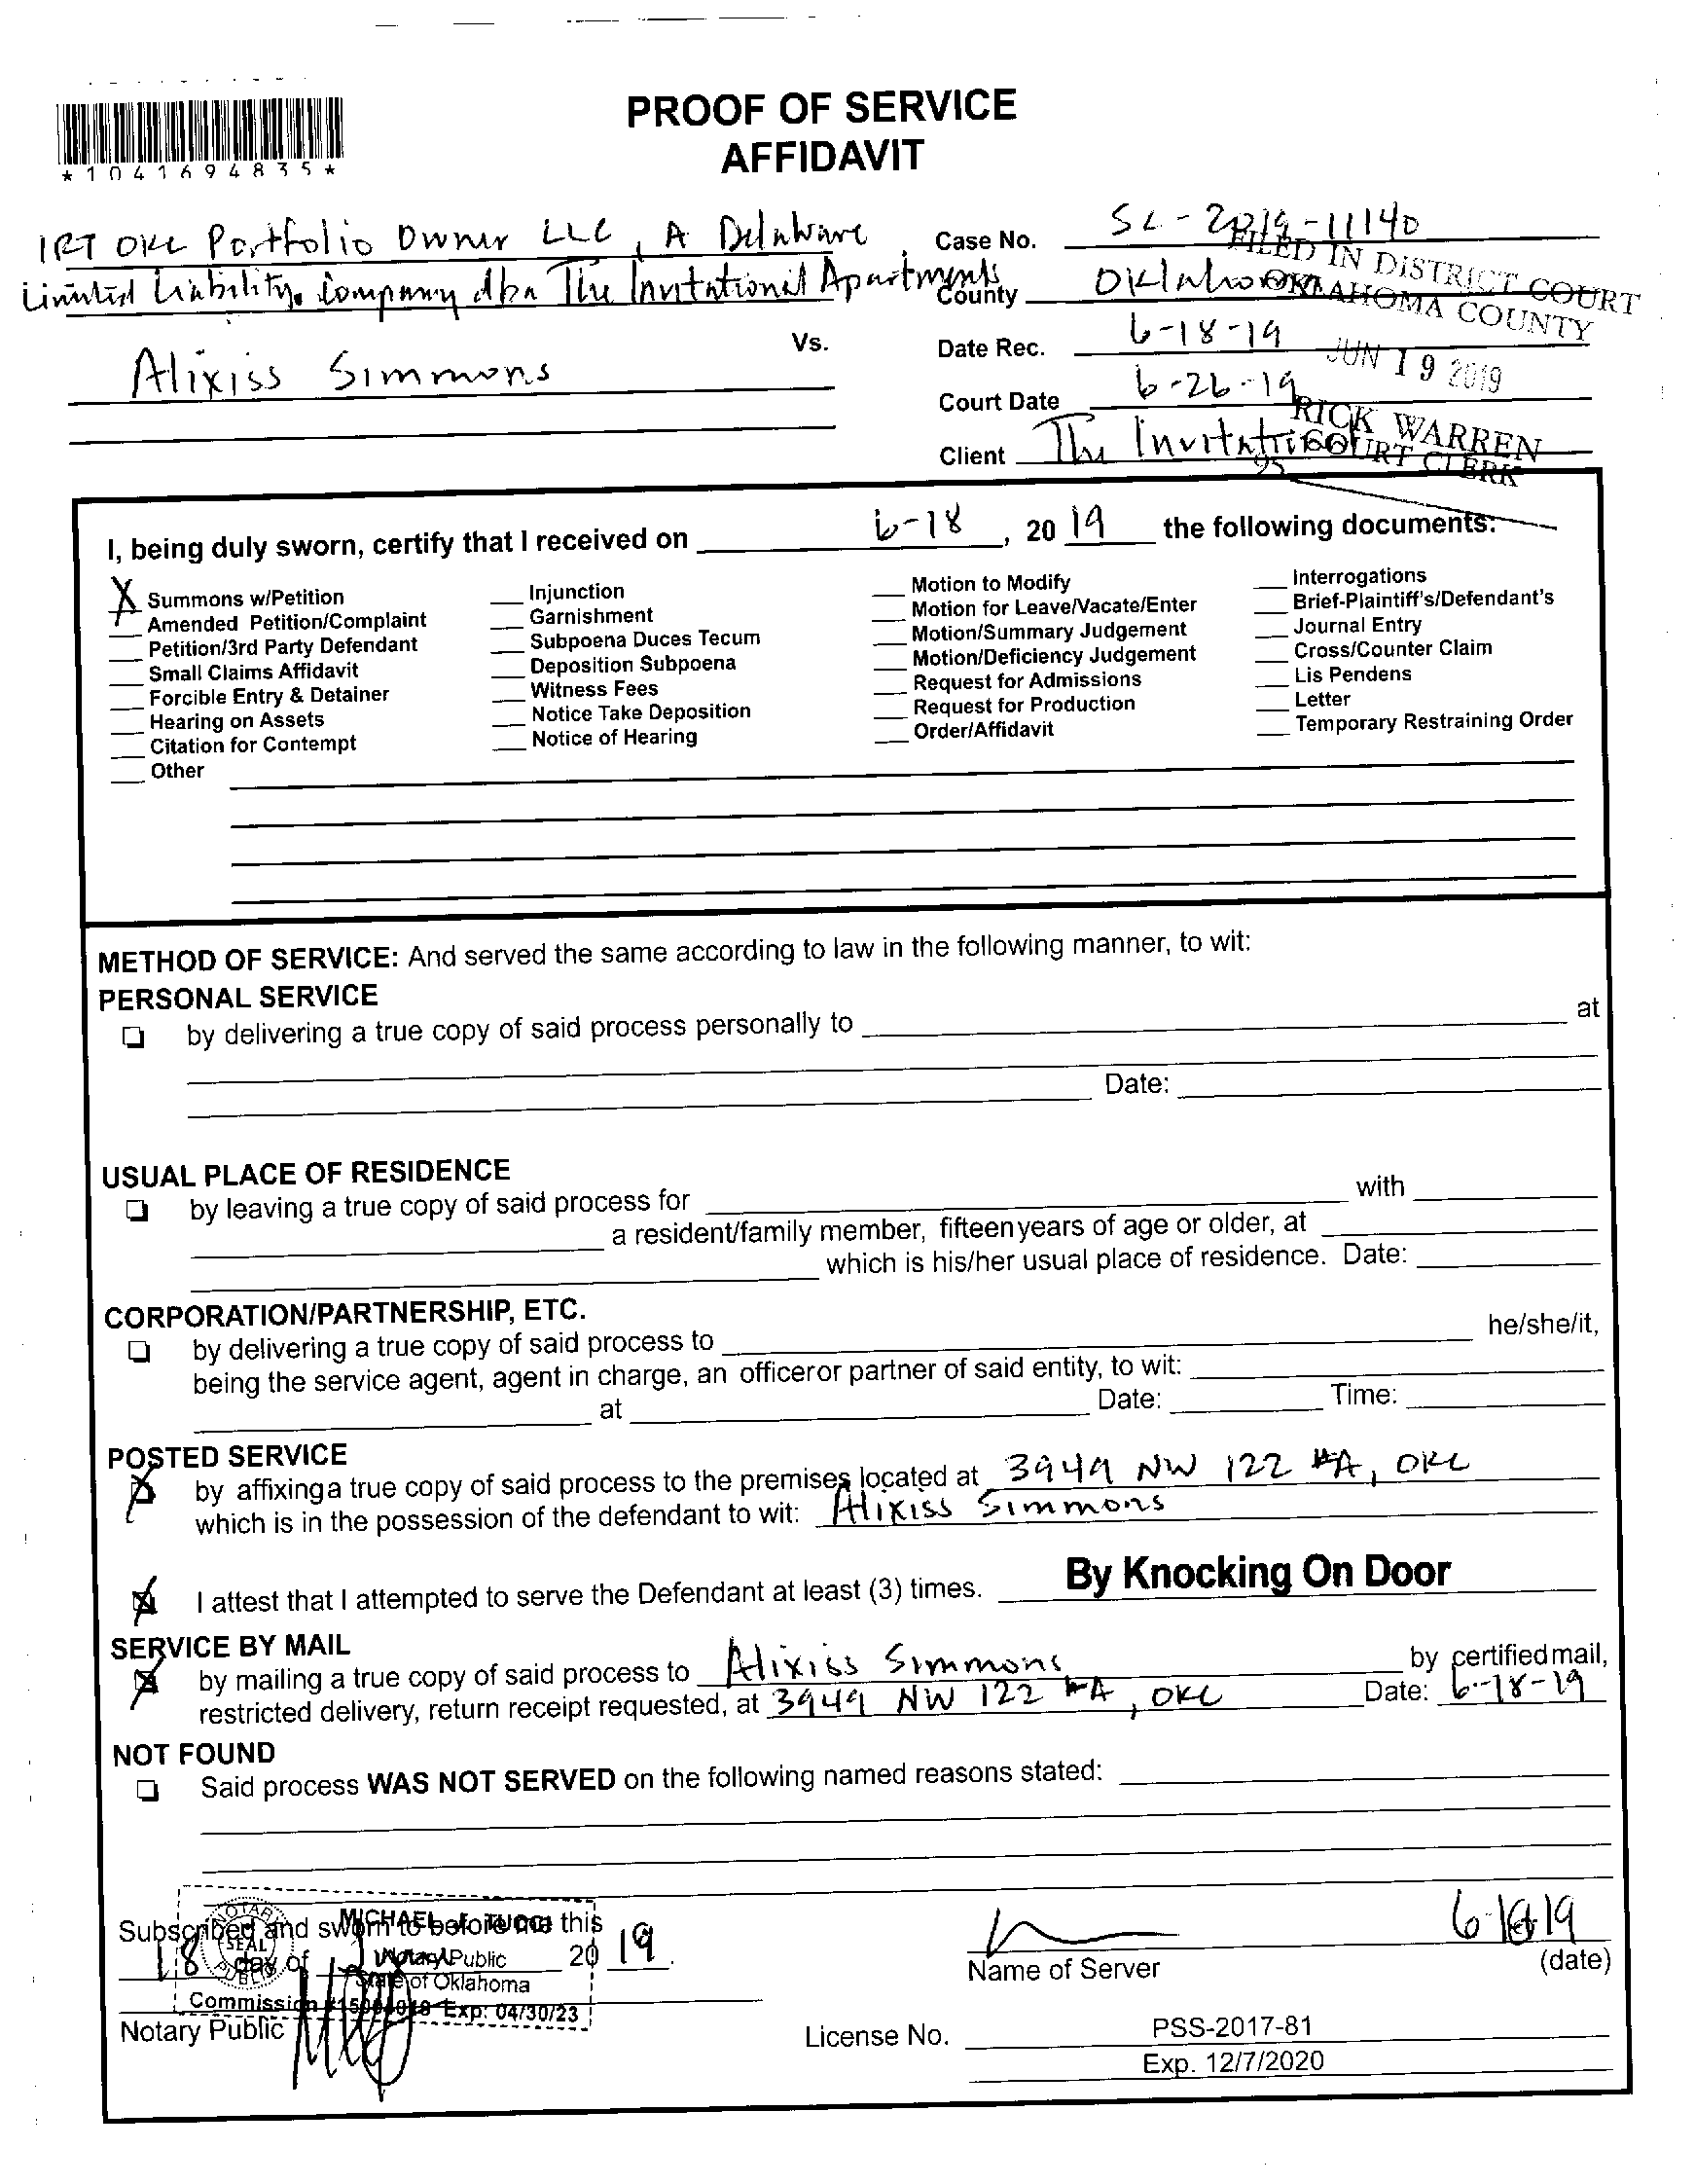 PROOF OF SERVICE
AFFIDAVIT
*1041694835*
IRT OKC Portfolio Owner LLC, A Delaware
Limited Liability Company dba The Invitational Apartments
Vs.
Alixiss Simmons
Case No. SC-2019-11140
County Oklahoma
Date Rec. 6-18-19
Court Date 6-26-19
Client The Invitational
FILED IN DISTRICT COURT
OKLAHOMA COUNTY
JUN 19 2019
RICK WARREN
COURT CLERK
95
I, being duly sworn, certify that I received on 6-18, 20 19 the following documents:
X Summons w/Petition
Amended Petition/Complaint
Petition/3rd Party Defendant
Small Claims Affidavit
Forcible Entry & Detainer
Hearing on Assets
Citation for Contempt
Other
Injunction
Garnishment
Subpoena Duces Tecum
Deposition Subpoena
Witness Fees
Notice Take Deposition
Notice of Hearing
Motion to Modify
Motion for Leave/Vacate/Enter
Motion/Summary Judgement
Motion/Deficiency Judgement
Request for Admissions
Request for Production
Order/Affidavit
Interrogations
Brief-Plaintiff's/Defendant's
Journal Entry
Cross/Counter Claim
Lis Pendens
Letter
Temporary Restraining Order
METHOD OF SERVICE: And served the same according to law in the following manner, to wit:
PERSONAL SERVICE
by delivering a true copy of said process personally to at
Date:
USUAL PLACE OF RESIDENCE
by leaving a true copy of said process for with
a resident/family member, fifteen years of age or older, at
which is his/her usual place of residence. Date:
CORPORATION/PARTNERSHIP, ETC.
by delivering a true copy of said process to he/she/it,
being the service agent, agent in charge, an officer or partner of said entity, to wit:
at Date: Time:
POSTED SERVICE
X by affixing a true copy of said process to the premises located at 3949 NW 122 #A, OKC
which is in the possession of the defendant to wit: Alixiss Simmons
X I attest that I attempted to serve the Defendant at least (3) times. By Knocking On Door
SERVICE BY MAIL
X by mailing a true copy of said process to Alixiss Simmons by certified mail,
restricted delivery, return receipt requested, at 3949 NW 122 #A, OKC Date: 6-18-19
NOT FOUND
Said process WAS NOT SERVED on the following named reasons stated:
Subscribed and sworn to before me this
18 day of 20 19.
Notary Public
NOTARY PUBLIC
SEAL
MICHAEL J. TUCCI
Notary Public
State of Oklahoma
Commission Exp: 04/30/23
Name of Server
6-18-19
(date)
License No. PSS-2017-81
Exp. 12/7/2020